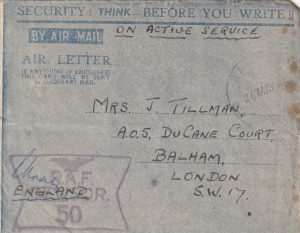 SECURITY: THINK BEFORE YOU WRITE!!
ON ACTIVE SERVICE
BY AIR MAIL
AIR LETTER
IF ANYTHING IS ENCLOSED
THIS CARD WILL BE SENT
BY ORDINARY MAIL.
MRS. J. TILLMAN,
A.O.5, DUCANE COURT,
BALHAM,
LONDON
S.W.17.
R.A.F.
ENGLAND
50